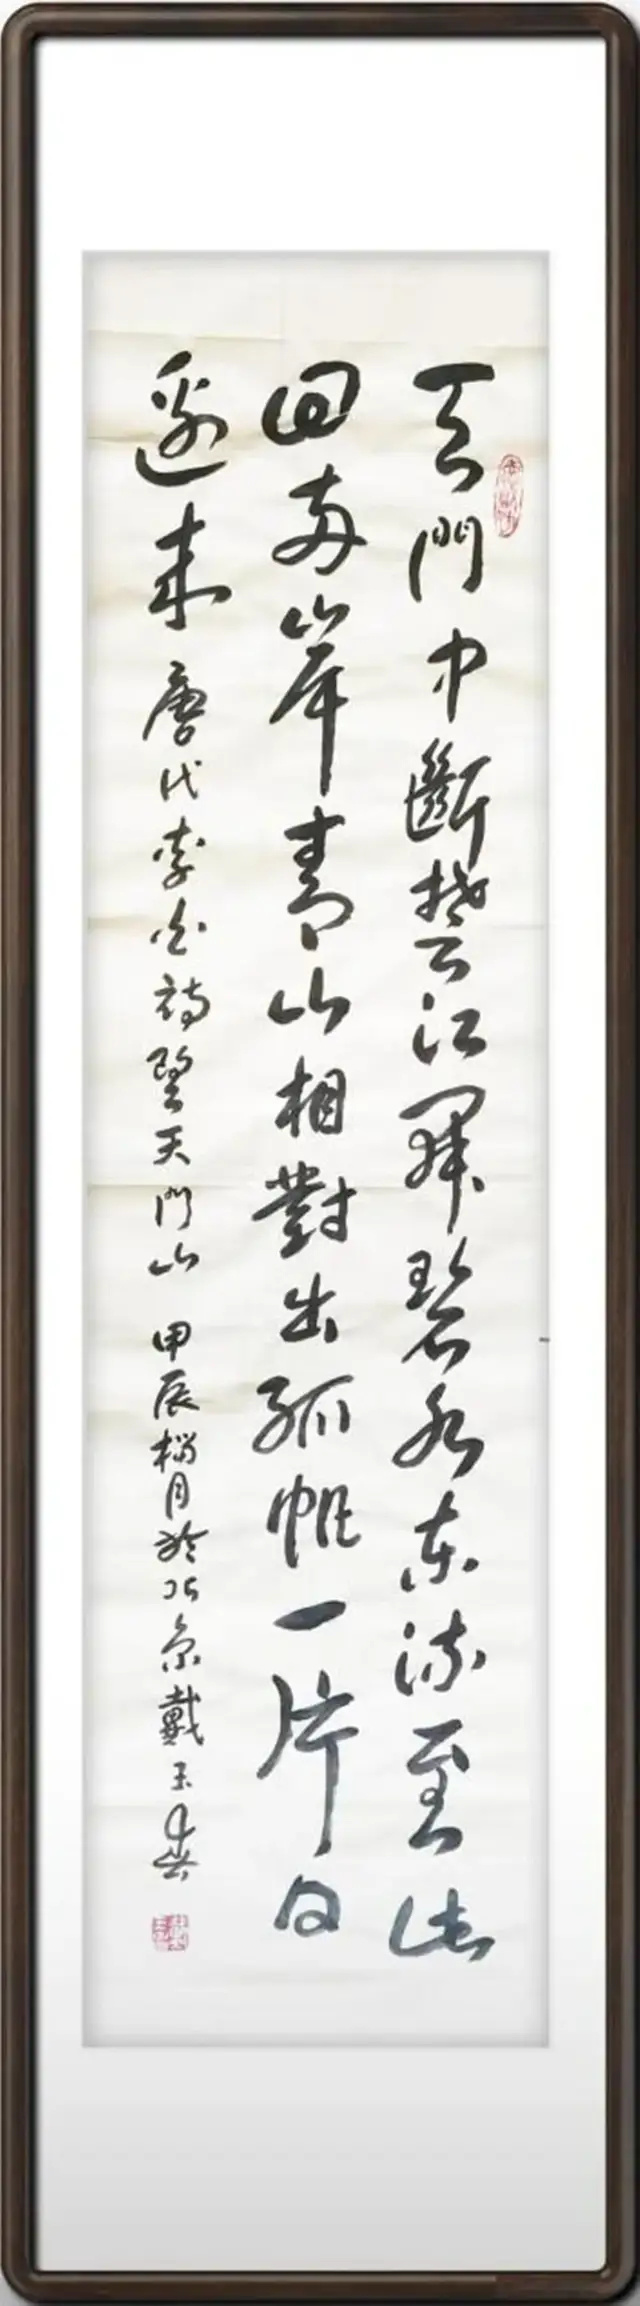 天門中斷楚江開碧水東流至此
回兩岸青山相對出孤帆一片日
邊来 唐代李白詩望天門山 甲辰榴月於北京戴玉春